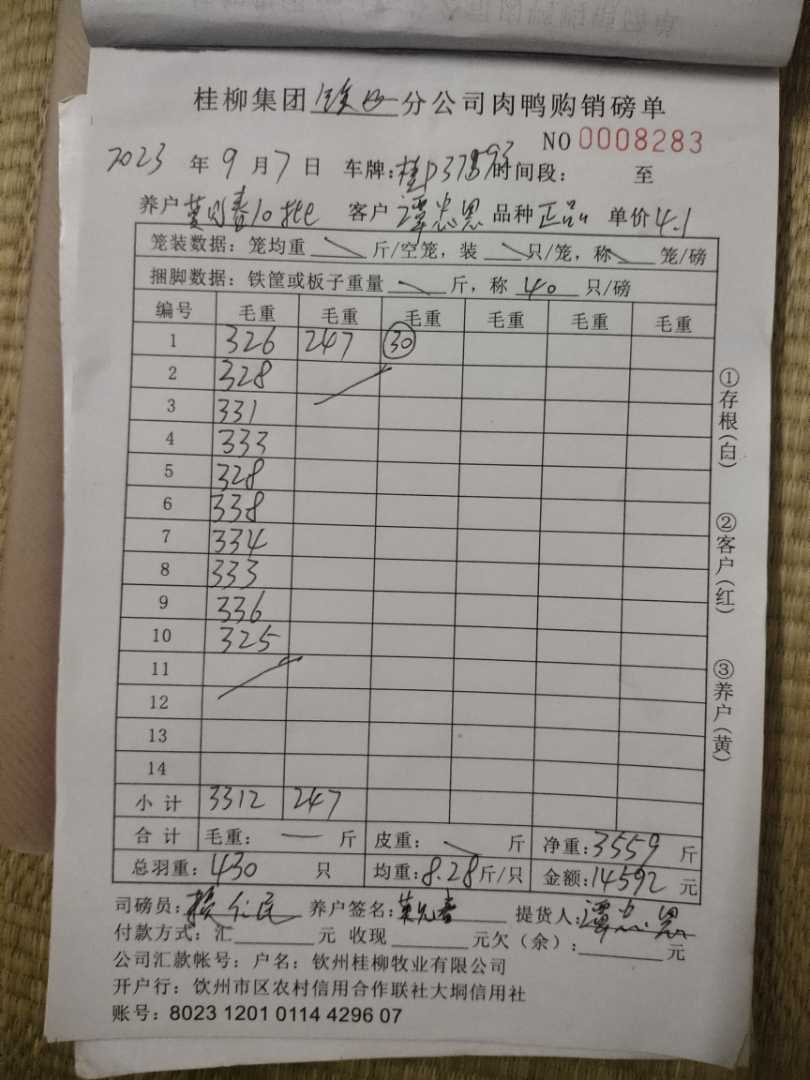 桂柳集团 分公司肉鸭购销磅单
NO 0008283
2023 年 9 月 7 日 车牌: 时间段: 至
养户 10批 客户 谭忠恩 品种 正品 单价 4.1
笼装数据: 笼均重 斤/空笼, 装 只/笼, 称 笼/磅
捆脚数据: 铁筐或板子重量 斤, 称 40 只/磅
编号 毛重 毛重 毛重 毛重 毛重 毛重
1 326 247 30
2 328
3 331
4 333
5 328
6 338
7 334
8 333
9 336
10 325
11
12
13
14
小计 3312 247
合计 毛重: — 斤 皮重: 斤 净重: 3559 斤
总羽重: 430 只 均重: 8.28 斤/只 金额: 14592 元
司磅员: 养户签名: 提货人: 谭忠恩
付款方式: 汇 元 收现 元欠(余): 元
公司汇款帐号: 户名: 钦州桂柳牧业有限公司
开户行: 钦州市区农村信用合作联社大垌信用社
账号: 8023 1201 0114 4296 07
①存根(白)
②客户(红)
③养户(黄)